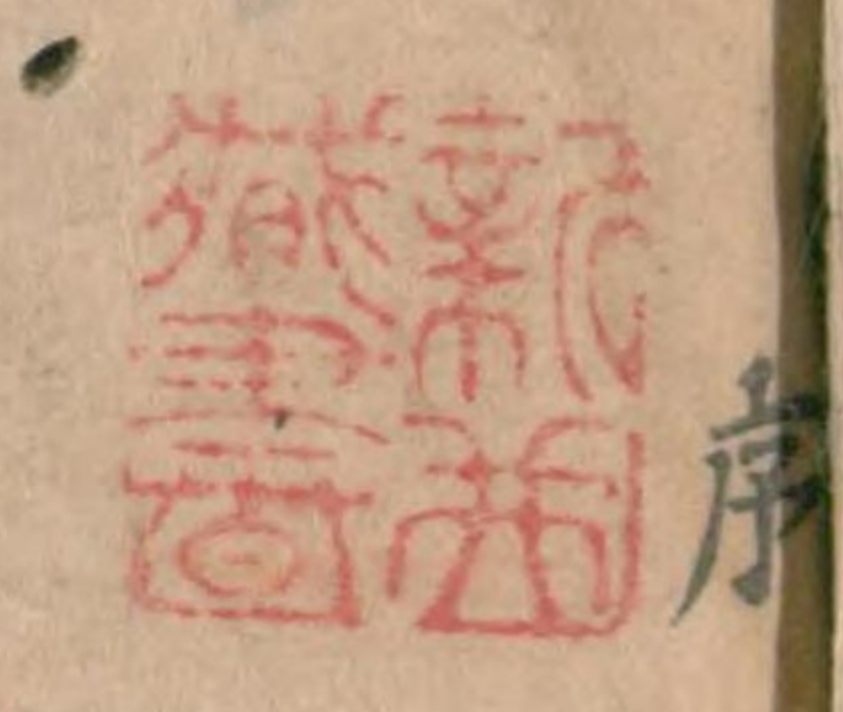 新
藏書
序